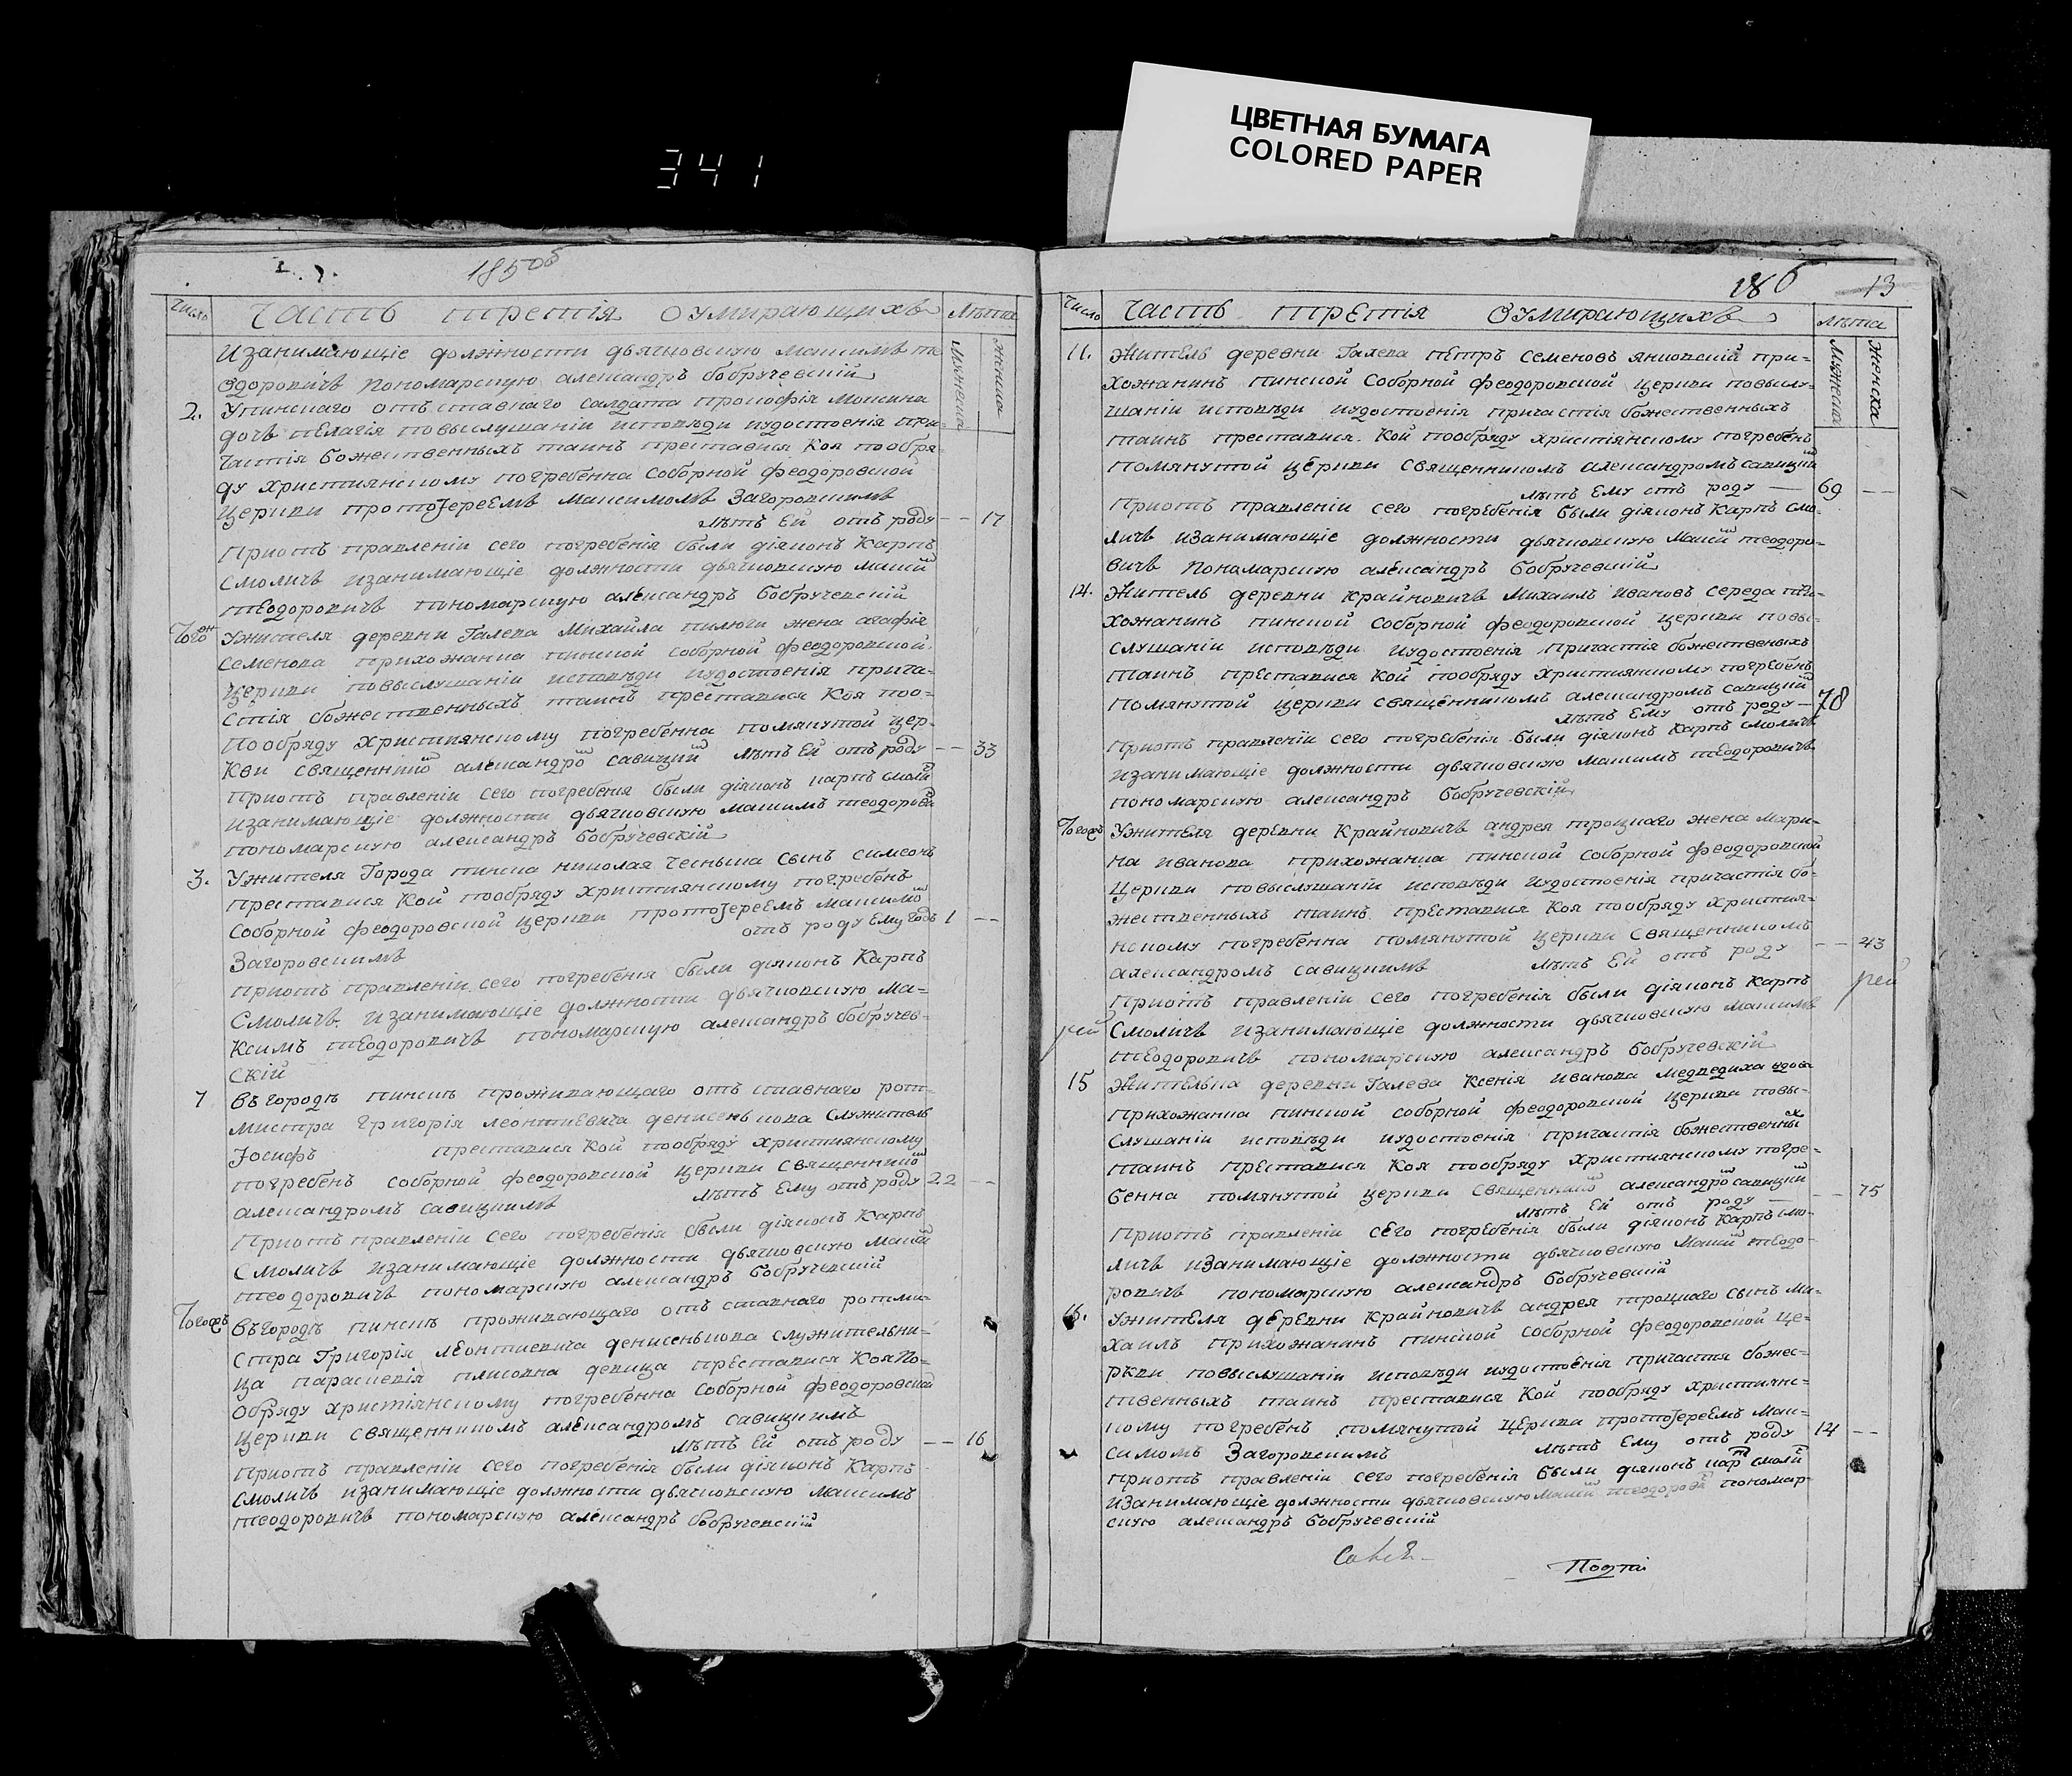 341
ЦВЕТНАЯ БУМАГА
COLORED PAPER
185об
Число Часть третія Оумирающихъ Лѣта
Мужеска Женска
изанимающіе должности дьячковскую максимъ те
одоровичъ пономарскую александръ бобручевскій
2. Упинскаго отъставнаго салдата прокофія
дочь пелагія повыслушаніи исповѣди иудостоенія при-
частія божественныхъ таинъ преставися Коя пообря-
ду християнскому погребенна соборной феодоровской
церкви протоІереемъ максимомъ Загоровскимъ
лѣтъ Ей отъ роду — — 17
Приотъ правленіи сего погребенія были діяконъ Карпъ
смоличъ изанимающіе должности дьячковскую макси
теодоровичъ пономарскую александръ бобручевскій
Тогожъ Ужителя деревни Галева Михайла пилюги жена агафія
семенова прихожанка пинской соборной феодоровской
церкви повыслушаніи исповѣди иудостоенія прича-
стія божественныхъ таинъ преставися Коя поо-
пообряду християнскому погребенна помянутой цер-
кви священнико александро савицки лѣтъ Ей отъ роду — — 33
приотъ правленіи сего погребенія были діяконъ карпъ смоли
изанимающіе должности дьячковскую максимъ теодорови
пономарскую александръ бобручевскій
3. Ужителя Города пинска николая чесныка сынъ симеонъ
преставися Кой пообряду християнскому погребенъ
соборной феодоровской церкви протоІереемъ максимо
отъ роду Ему годъ 1 — —
Загоровскимъ
приотъ правленіи сего погребенія были діяконъ Карпъ
Смоличъ изанимающіе должности дьячковскую ма-
ксимъ теодоровичъ пономарскую александръ бобручев-
скій
7 въ городѣ пинскѣ проживающаго отъ ставнаго рот-
мистра григорія леонтиевича денисенькова служитель
Іосифъ преставися Кой пообряду християнскому
погребенъ соборной феодоровской церкви священнико
лѣтъ Ему отъ роду 22 — —
александромъ савицкимъ
Приотъ правленіи сего погребенія были діяконъ Карпъ
Смоличъ изанимающіе должности дьячковскую макси
теодоровичъ пономарскую александръ бобручевскій
Тогожъ въгородѣ пинскѣ проживающаго отъ ставнаго ротми-
стра Григорія леонтиевича денисенькова служительни-
ца параскевія девица преставися Коя по-
обряду християнскому погребенна соборной феодоровской
церкви священникомъ александромъ савицкимъ
лѣтъ Ей отъ роду — — 16
приотъ правленіи сего погребенія были діяконъ Карпъ
смоличъ изанимающіе должности дьячковскую максимъ
теодоровичъ пономарскую александръ бобручевскій
186 13
Число Часть третія Оумирающихъ Лѣта
Мужеска Женска
11. Житель деревни Галева петръ семеновъ янковскій при-
хожанинъ пинской соборной феодоровской церкви повыслу-
шаніи исповѣди иудостоенія причастія божественныхъ
таинъ преставися. Кой пообряду християнскому погребенъ
помянутой церкви священникомъ александромъ савицки
лѣтъ Ему отъ роду — 69 — —
Приотъ правленіи сего погребенія были діяконъ Карпъ смо-
личъ изанимающіе должности дьячковскую Макси теодоро-
вичъ пономарскую александръ бобручевскій
14. Житель деревни крайновичъ михаилъ ивановъ середа при-
хожанинъ пинской соборной феодоровской церкви повы-
слушаніи исповѣди иудостоенія причастія божественыхъ
таинъ преставися Кой пообряду Християнскому погребенъ
помянутой церкви священникомъ александромъ савицки
лѣтъ Ему отъ роду — 78
Приотъ правленіи сего погребенія были діяконъ карпъ смоличъ
изанимающіе должности дьячковскую максимъ теодоровичъ
пономарскую александръ бобручевскій
Тогожъ Ужителя деревни Крайновичъ андрея троцкаго жена мари-
на иванова прихожанка пинской соборной феодоровской
церкви повыслушаніи исповѣди иудостоенія причастія бо-
жественныхъ таинъ преставися Коя пообряду християн-
нскому погребенна помянутой церкви священникомъ
— — 43
александромъ савицкимъ лѣтъ Ей отъ роду
Приотъ правленіи сего погребенія были діяконъ карпъ
Смоличъ изанимающіе должности дьячковскую максимъ
теодоровичъ пономарскую александръ бобручевскій
15 Жителька деревни Галева Ксенія иванова медведиха удова
прихожанка пинской соборной феодоровской церкви повы-
слушаніи исповѣди иудостоенія причастія божественны
таинъ преставися Коя пообряду християнскому погре-
бенна помянутой церкви священнико александро савицки
лѣтъ Ей отъ роду — — 75
приотъ правленіи сего погребенія были діяконъ карпъ смо-
личъ изанимающіе должности дьячковскую макси теодо-
ровичъ пономарскую александръ бобручевскій
16. Ужителя деревни крайновичъ андрея троцкаго сынъ ми-
хаилъ прихожанинъ пинской соборной феодоровской це-
ркви повыслушаніи исповѣди иудостоенія причастія божес-
твенныхъ таинъ преставися Кой пообряду християнс-
кому погребенъ помянутой церкви протоІереемъ мак-
симомъ Загоровскимъ лѣтъ Ему отъ роду 14 — —
приотъ правленіи сего погребенія были діяконъ кар смоли
изанимающіе должности дьячковскую макси теодорови пономар-
скую александръ бобручевскій